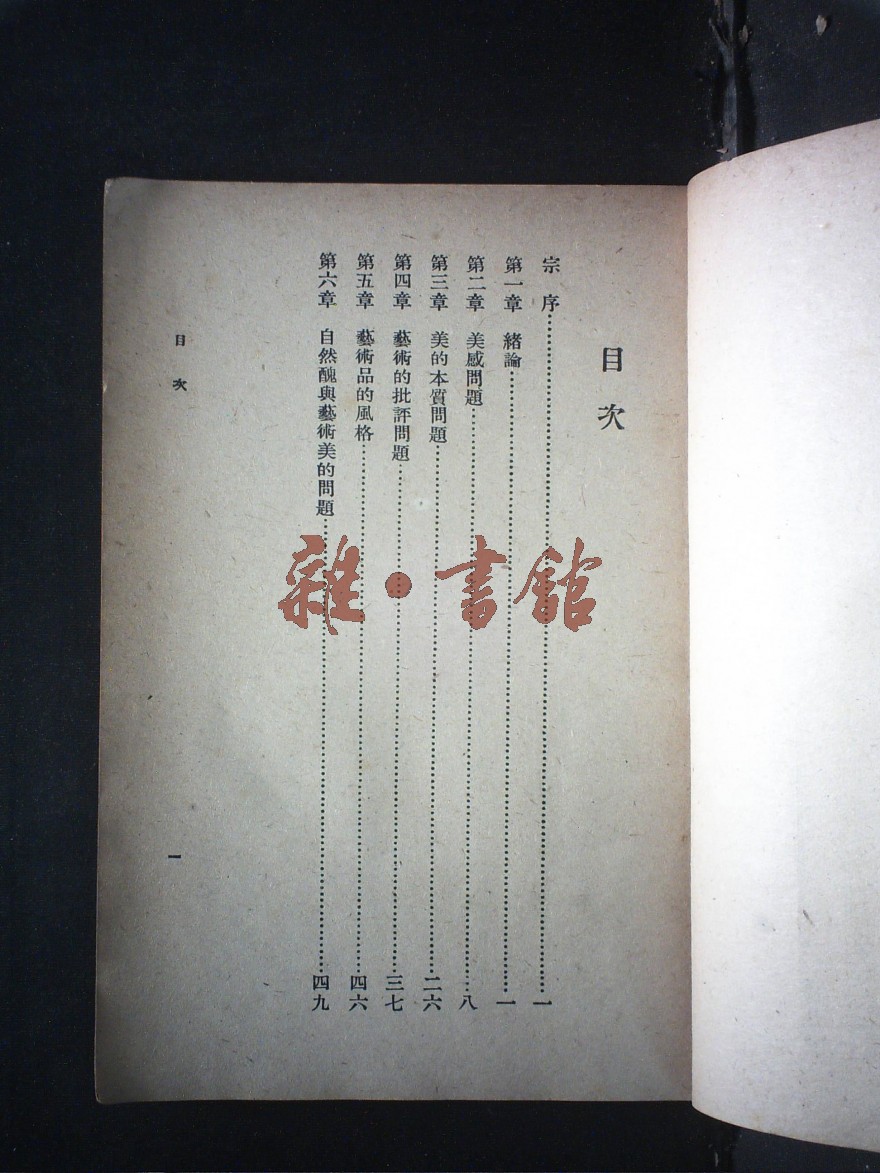 目次
宗序……一
第一章 緒論……一
第二章 美感問題……八
第三章 美的本質問題……二六
第四章 藝術的批評問題……三七
第五章 藝術品的風格……四六
第六章 自然醜與藝術美的問題……四九
目次
一
雜·書館